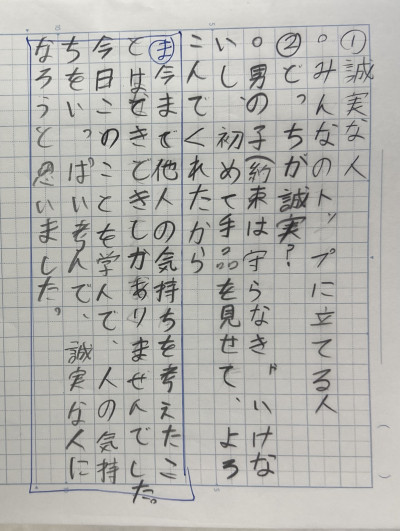 ①誠実な人
。みんなのトップに立てる人
②どっちが誠実?
。男の子(約束は守らなきゃいけな
いし、初めて手品を見せて、よろ
こんでくれたから
ま今まで他人の気持ちを考えたこ
とはときどきしかありませんでした。
今日このことを学んで、人の気持
ちをいっぱい考えんで、誠実な人に
なろうと思いました。